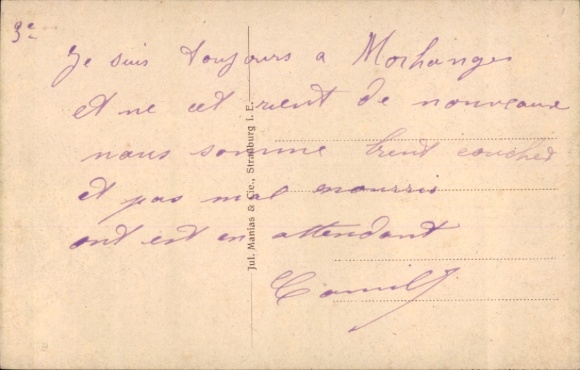 3e
Je suis toujours a Morhanges
et ne cet rient de nouveaux
nous somme bient couches
et pas mal nourris
ont est en attendant
Camil
Jul. Manias & Cie., Straßburg i. E.